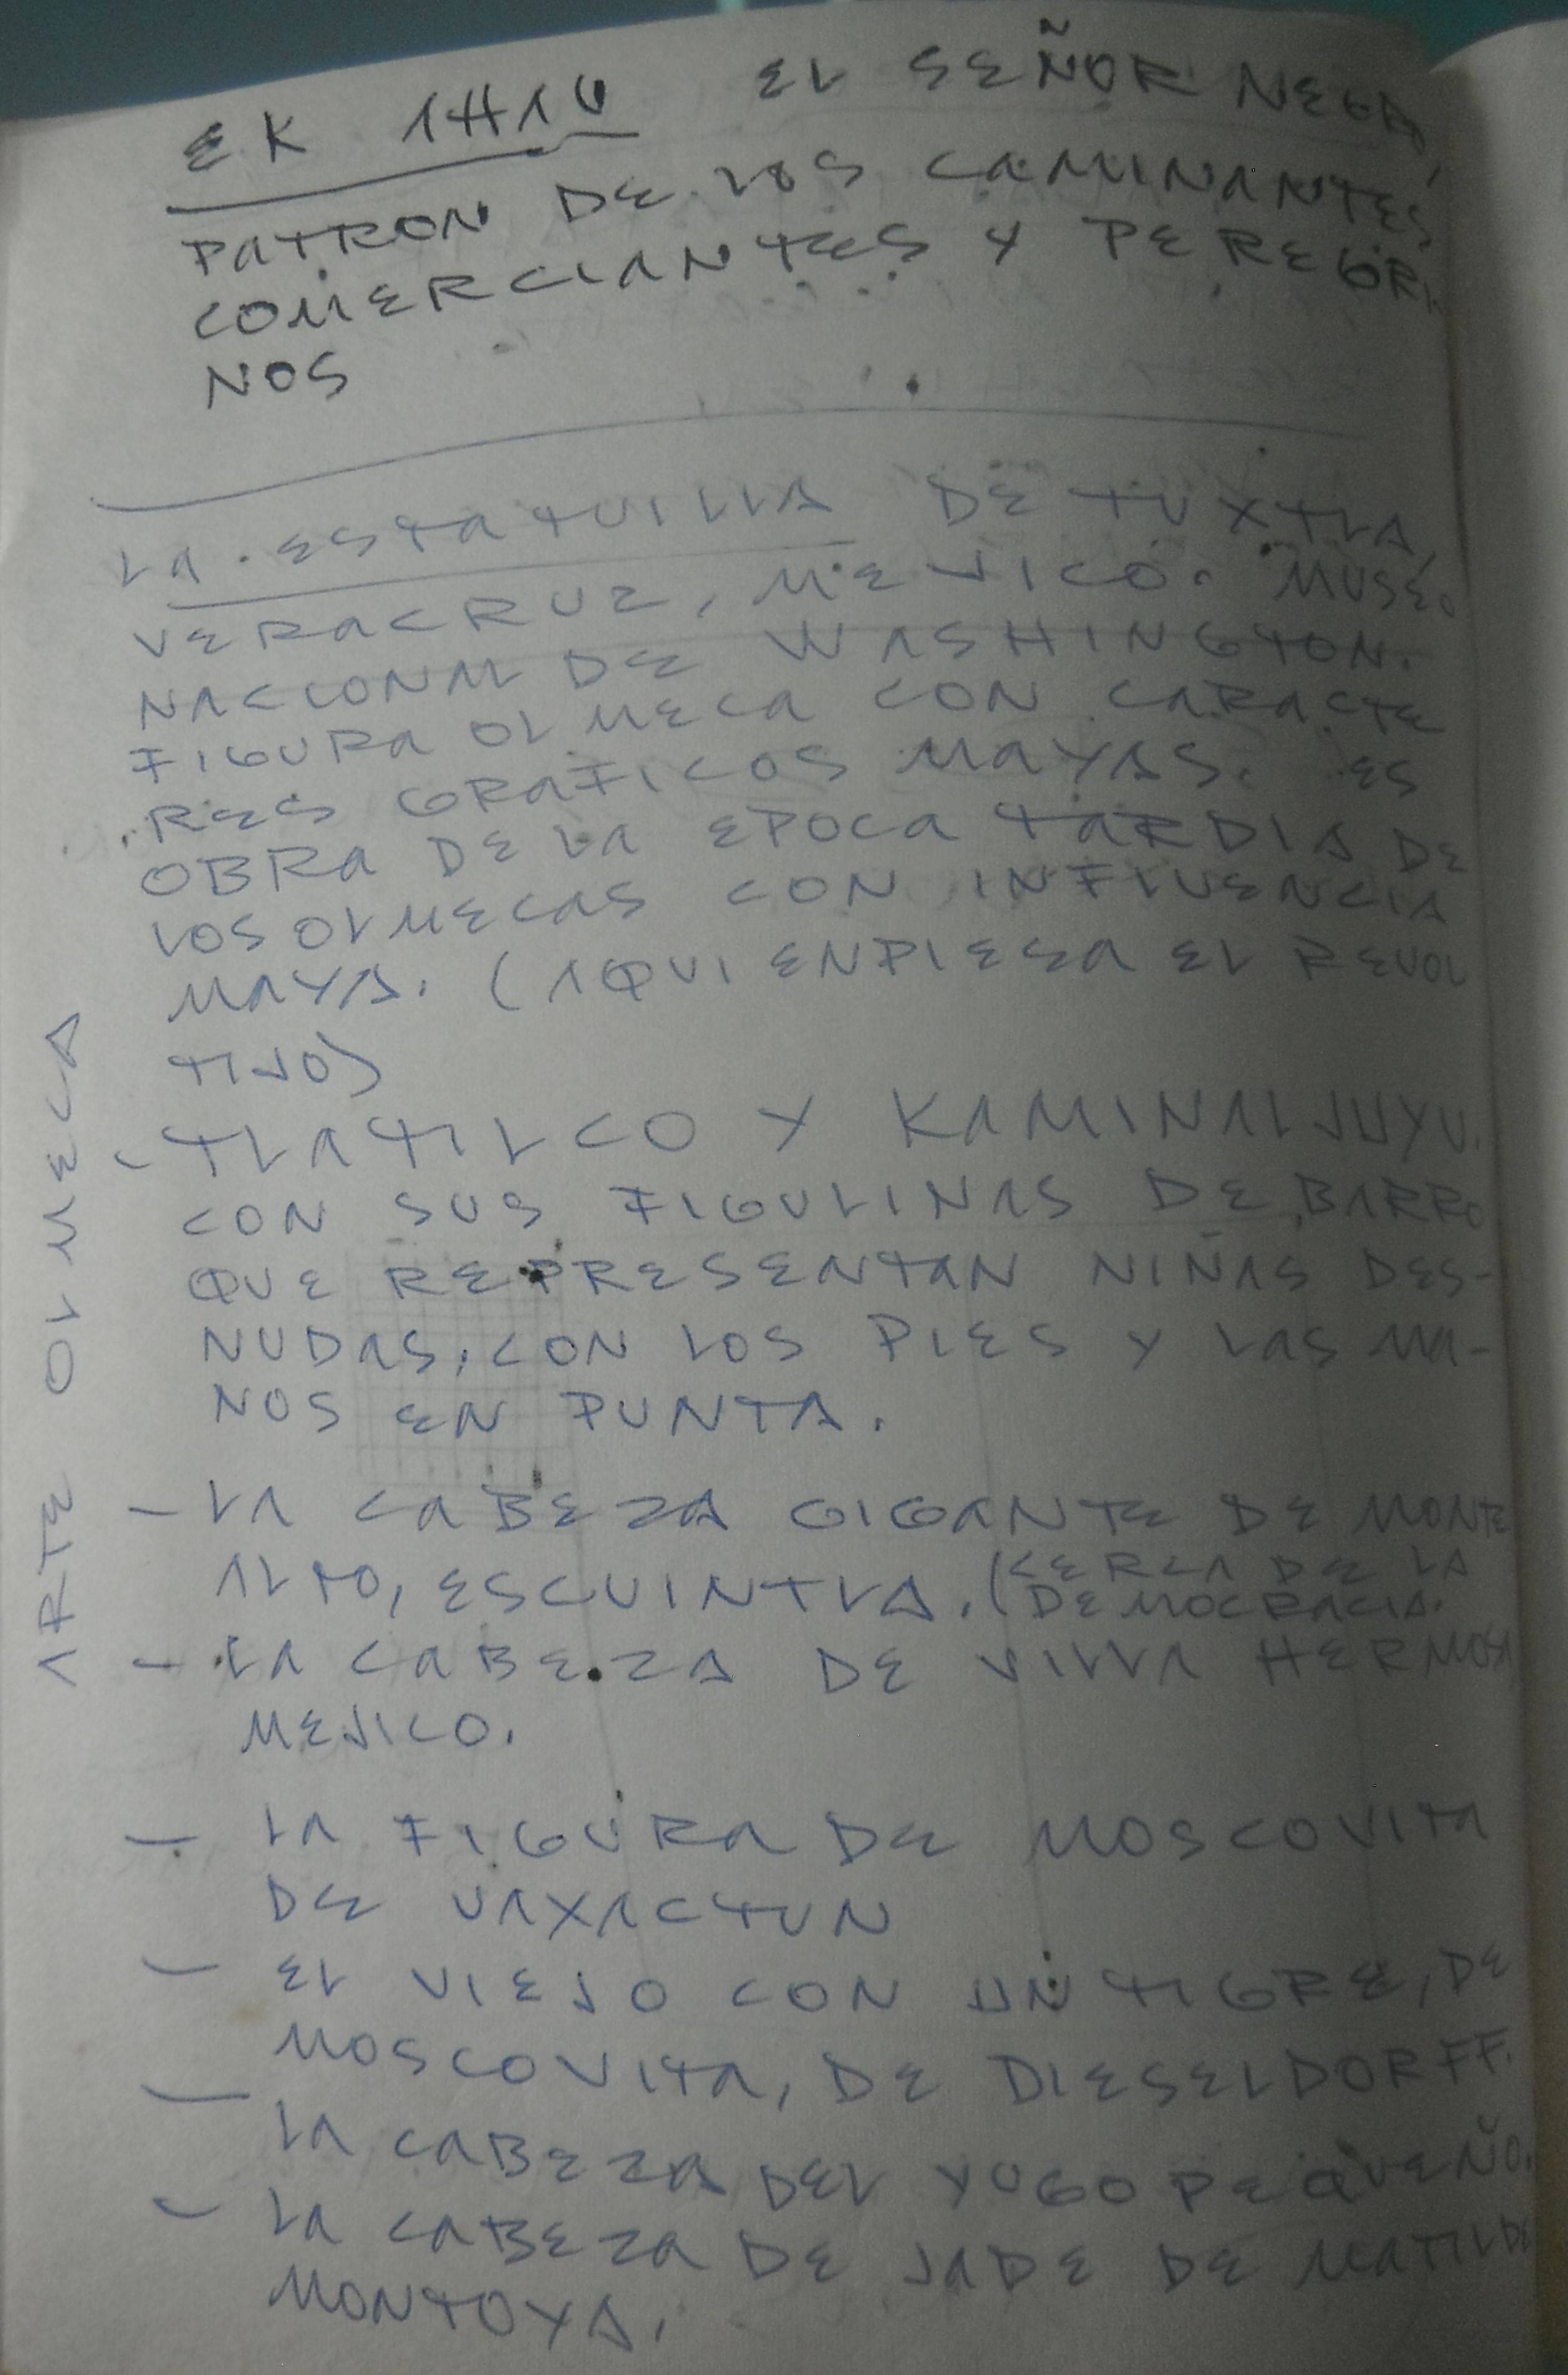 EK AHAU EL SEÑOR NEGRO,
PATRON DE LOS CAMINANTES
COMERCIANTES Y PEREGRI
NOS
LA ESTATUILLA DE TUXTLA,
VERACRUZ, MEJICO. MUSEO
NACIONAL DE WASHINGTON.
FIGURA OLMECA CON CARACTE
RES GRAFICOS MAYAS. ES
OBRA DE LA EPOCA TARDIA DE
LOS OLMECAS CON INFLUENCIA
MAYA. (AQUI ENPIESA EL REVOL
TIJO)
- TLATILCO Y KAMINALJUYU.
CON SUS FIGULINAS DE BARRO
QUE REPRESENTAN NIÑAS DES-
NUDAS, CON LOS PIES Y LAS MA-
NOS EN PUNTA.
- LA CABEZA GIGANTE DE MONTE
ALTO, ESCUINTLA. (CERCA DE LA
DEMOCRACIA.
- LA CABEZA DE VILLA HERMOSA
MEJICO.
- LA FIGURA DE MOSCOVITA
DE UAXACTUN
- EL VIEJO CON UN TIGRE, DE
MOSCOVITA, DE DIESELDORFF.
- LA CABEZA DEL YUGO PEQUEÑO.
- LA CABEZA DE JADE DE MATILDE
MONTOYA.
ARTE OLMECA